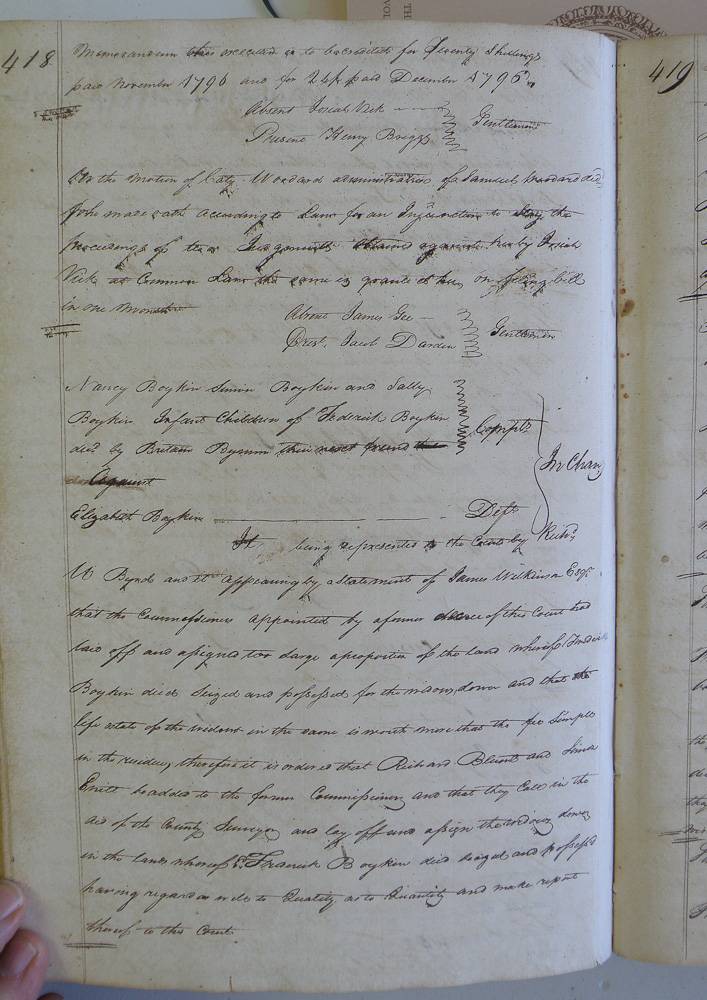 418
Memorandum this execution is to be credited for Seventy Shillings
paid November 1796 and for 24/ paid December 1796
Absent Josiah Vick
Present Henry Briggs Gentlemen
On the motion of Caty Woodard administratrix of Samuel Woodard decd
who made oath according to Law for an Injunction to Stay the
proceedings of two Judgments obtained against her by Josiah
Vick at Common Law the same is granted her on filing bill
in one Month
Absent James Gee
Prest. Jacob Darden Gentlemen
Nancy Boykin Simon Boykin and Sally
Boykin Infant Children of Frederick Boykin
decd by Britain Bynum their next friend Complts
Against In Chan
Elizabeth Boykin Deft
It being represented to the Court by Richd
W Byrd and it appearing by a Statement of James Wilkinson Esqr.
that the Commissioners appointed by a former decree of this Court had
laid off and assigned too large a proportion of the land whereof Frederick
Boykin died Seized and possessed for the widows dower and that the
life estate of the widow in the same is worth more that the fee Simple
in the residue, therefore it is ordered that Richard Blunt and
be added to the former Commissioners and that they Call in the
aid of the County Surveyor and lay off and assign the widows dower
in the lands whereof Frederick Boykin died seized and possessed
having regard as well to Quality as to Quantity and make report
thereof to this Court
419